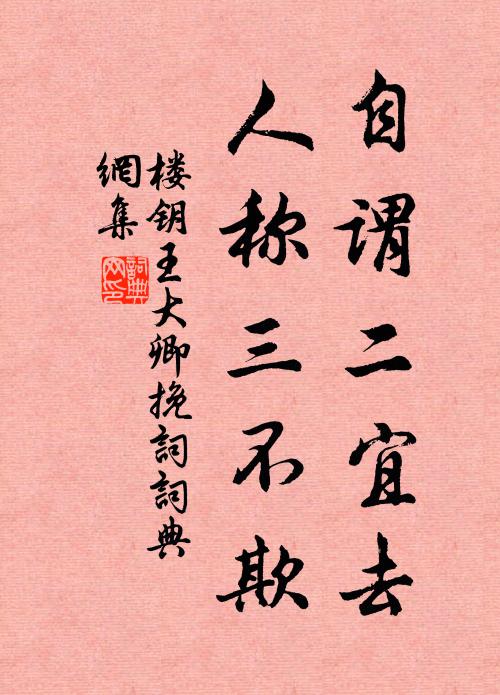 自谓二宜去
人称三不欺
楼钥王大卿挽詞詞典
網集
詞典
网印